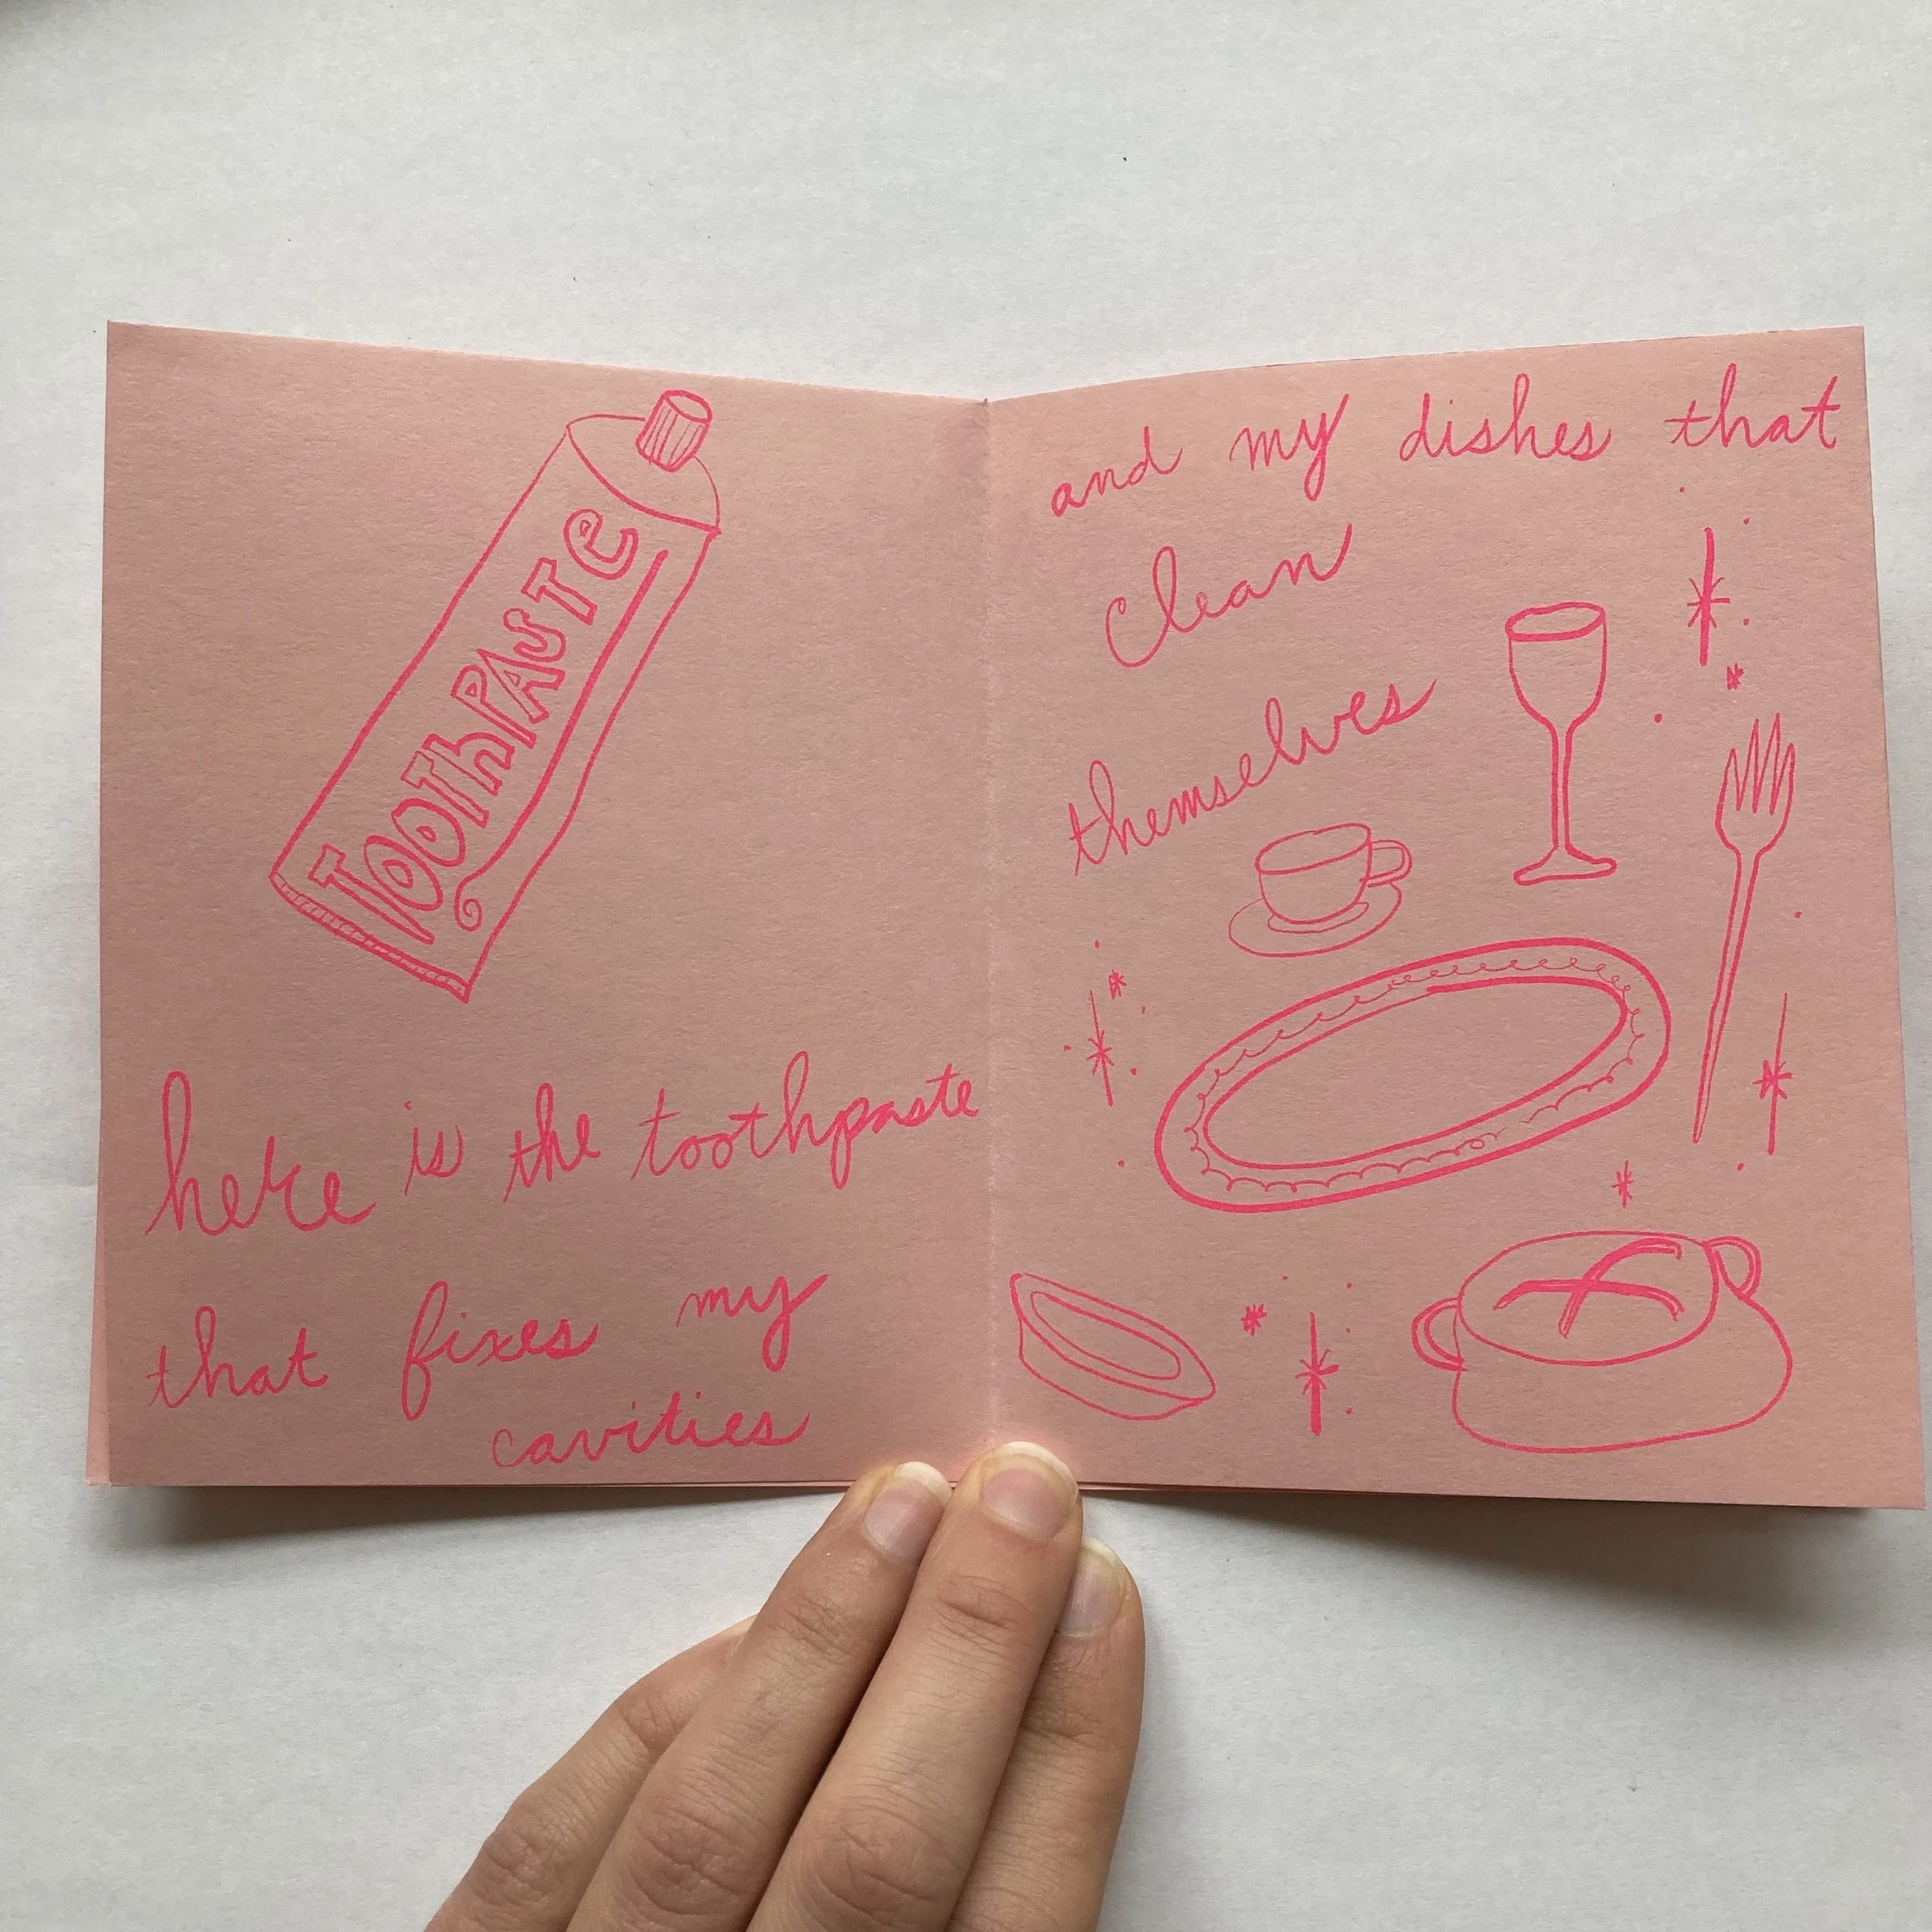 ToothPASTe
here is the toothpaste
that fixes my
cavities
and my dishes that
clean
themselves